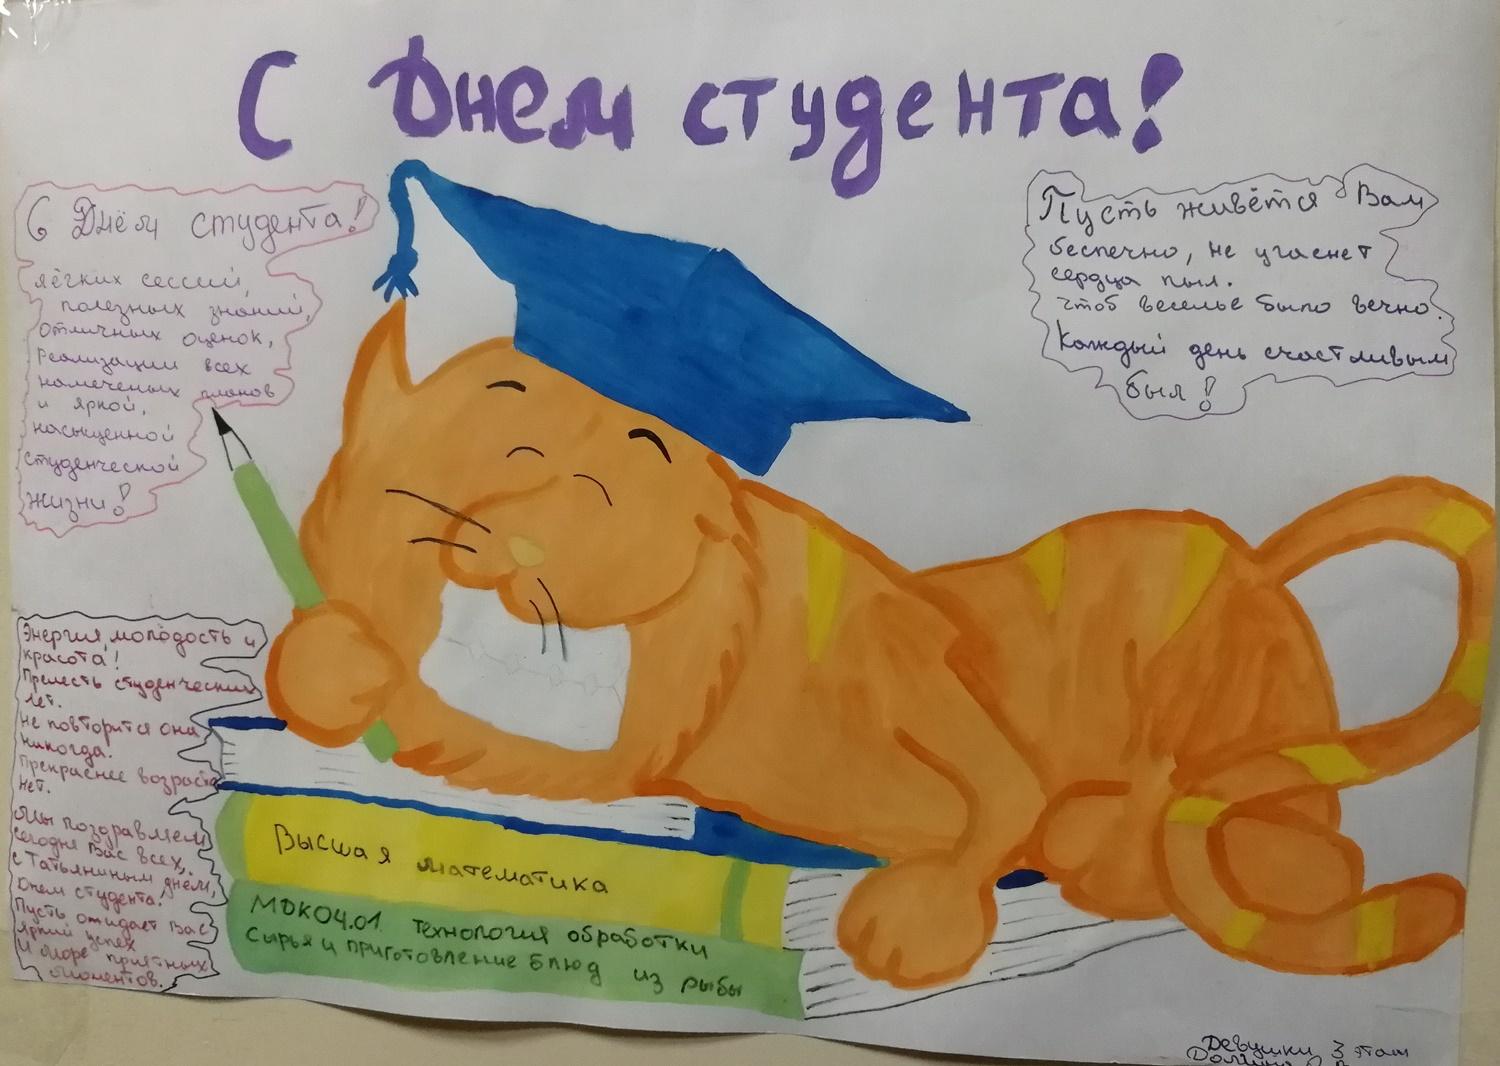 С Днем студента!
С Днём студента!
лёгких сессий,
полезных знаний,
отличных оценок,
реализации всех
намеченых планов
и яркой,
насыщенной
студенческой
жизни!
Пусть живётся Вам
беспечно, не угаснет
сердца пыл.
чтоб веселье было вечно.
Каждый день счастливым
был!
Энергия, молодость и
красота!
Прелесть студенческих
лет.
Не повторится она
никогда!
Прекраснее возраста
нет.
Мы поздравляем
сегодня Вас всех,
с Татьяниным днём,
Днем студента!
Пусть ожидает Вас
яркий успех
И море приятных
моментов.
Высшая математика
МДК04.01. Технология обработки
сырья и приготовление блюд из рыбы
Девушки 3 этаж